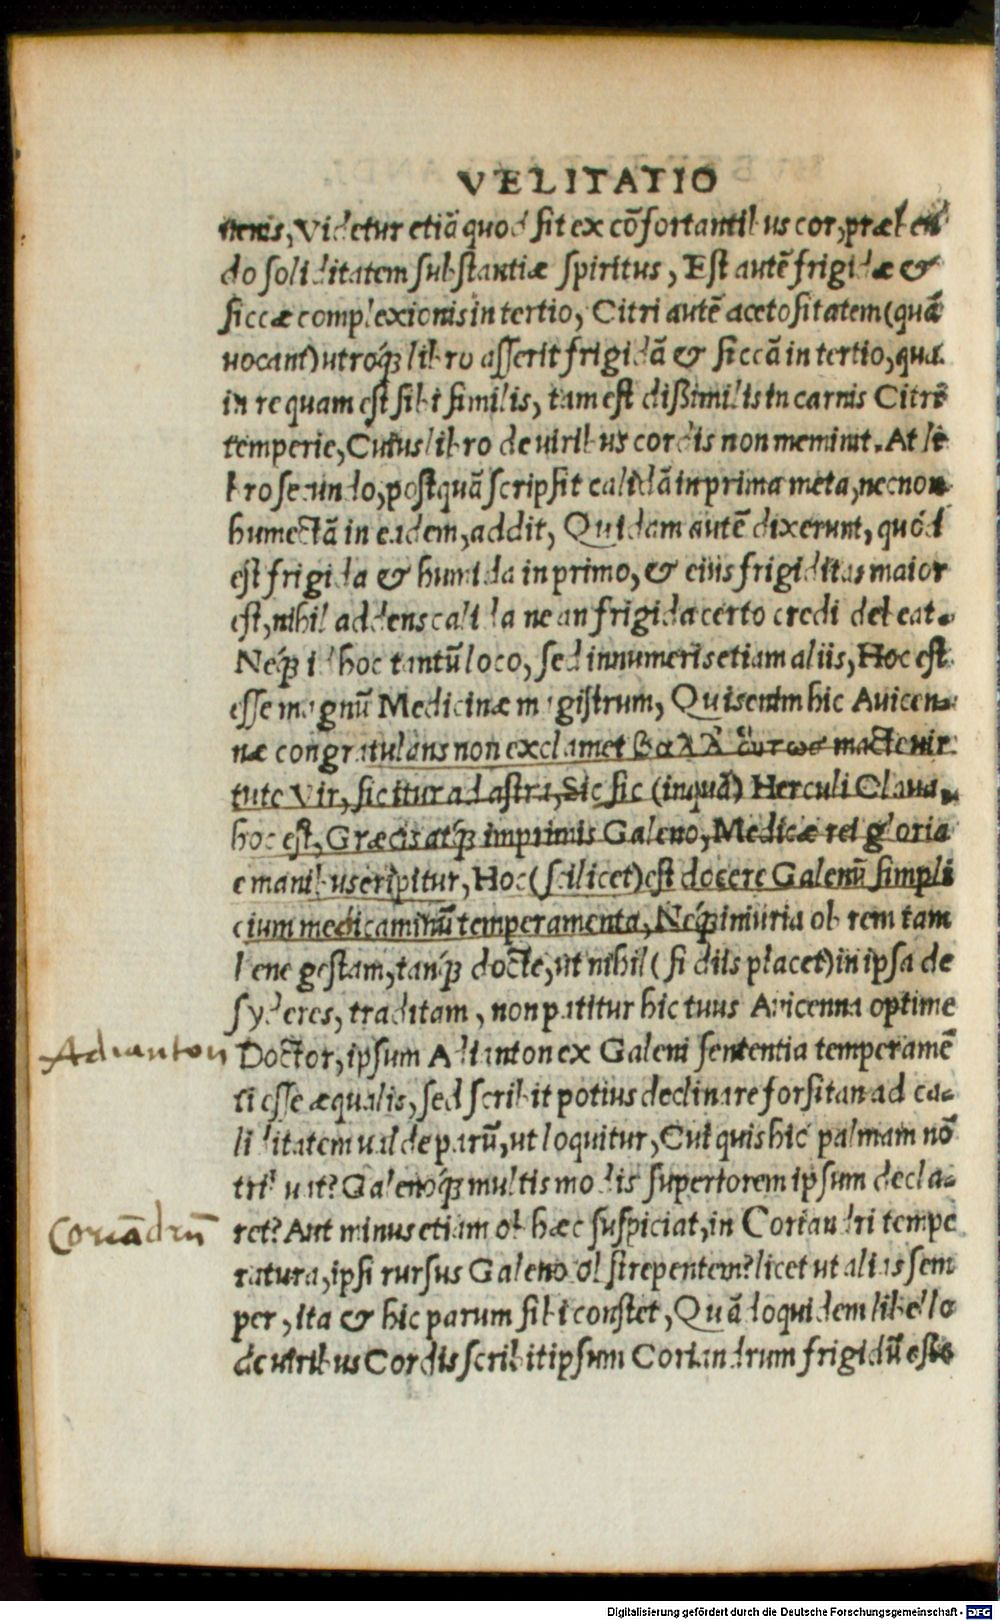 VELITATIO
nenis, Videtur etiã quod sit ex cõfortantibus cor, præben
do soliditatem substantiæ spiritus, Est autẽ frigidæ &
siccæ complexionis in tertio, Citri autẽ acetositatem (quã
uocant) utroq́ꝫ libro asserit frigidã & siccã in tertio, qua
in re quam est sibi similis, tam est dißimilis in carnis Citri
temperie, Cuius libro de uiribus cordis non meminit. At li
bro secundo, postquã scripsit calidã in prima meta, necnon
humectã in eadem, addit, Quidam autẽ dixerunt, quòd
est frigida & humida in primo, & eius frigiditas maior
est, nihil addens calida ne an frigida certo credi debeat.
Neq́ꝫ id hoc tantũ loco, sed innumeris etiam aliis, Hoc est
esse magnũ Medicinæ magistrum, Quis enim hic Auicen-
næ congratulans non exclamet βαλλ᾽ οὕτως macte uir
tute Vir, sic itur ad astra, Sic sic (inquã) Herculi Claua,
hoc est, Græcis atq́ꝫ imprimis Galeno, Medicæ rei gloria
e manibus eripitur, Hoc (scilicet) est docere Galenũ simpli
cium medicaminũ temperamenta, Neq́ꝫ iniuria ob rem tam
bene gestam, tanq́ꝫ docte, ut nihil (si diis placet) in ipsa de
syderes, traditam, non patitur hic tuus Auicenna optime
Adianton
Doctor, ipsum Adianton ex Galeni sententia temperamẽ
ti esse æqualis, sed scribit potius declinare forsitan ad ca-
liditatem ualde parũ, ut loquitur, Cui quis hic palmam nõ
tribuat? Galenoq́ꝫ multis modis superiorem ipsum decla-
Coriãdrũ
ret? Aut minus etiam ob hæc suspiciat, in Coriandri tempe
ratura, ipsi rursus Galeno obstrepentem? licet ut alias sem
per, ita & hic parum sibi constet, Quãdoquidem libello
de uiribus Cordis scribit ipsum Coriandrum frigidũ esse
Digitalisierung gefördert durch die Deutsche Forschungsgemeinschaft - DFG